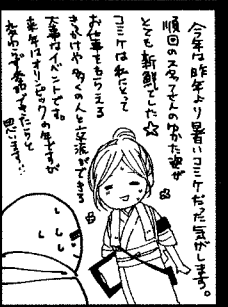 今年は昨年より暑いコミケだった気がします。
順回のスタッフさんのゆかた姿が
とても新鮮でした☆
コミケは私にとって
お仕事をもらえる
きっかけや多くの人と交流ができる
大事なイベントです。
来年はオリンピックの年ですが
変わらず参加できたらと
思います!!